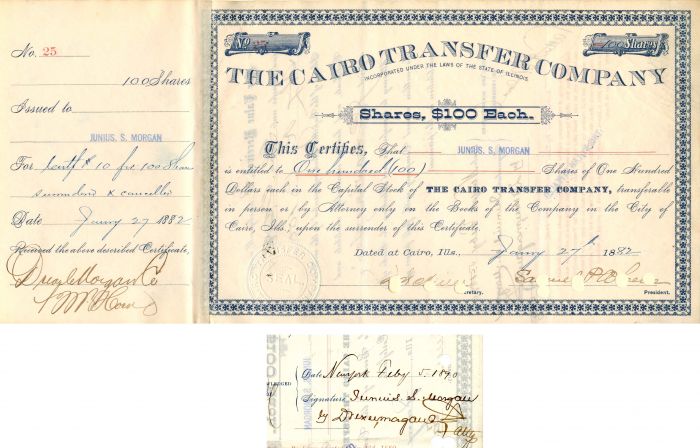 No. 25
100 Shares
Issued to
JUNIUS. S. MORGAN
For certf # 10 for 100 Shares
surrendered & cancelled
Date Jany 27 1882
Received the above described Certificate,
Drexel Morgan & Co
No 25
100 Shares
THE CAIRO TRANSFER COMPANY
INCORPORATED UNDER THE LAWS OF THE STATE OF ILLINOIS
Shares, $100 Each.
This Certifies, That JUNIUS. S. MORGAN
is entitled to One hundred (100) Shares of One Hundred
Dollars each in the Capital Stock of THE CAIRO TRANSFER COMPANY, transferable
in person or by Attorney only on the Books of the Company in the City of
Cairo, Ills., upon the surrender of this Certificate.
Dated at Cairo, Ills., Jany 27th 1882
SEAL
Secretary. President.
Date New York Feby 5. 1890
Signature Junius S. Morgan
by Drexel Morgan & Co
Atty